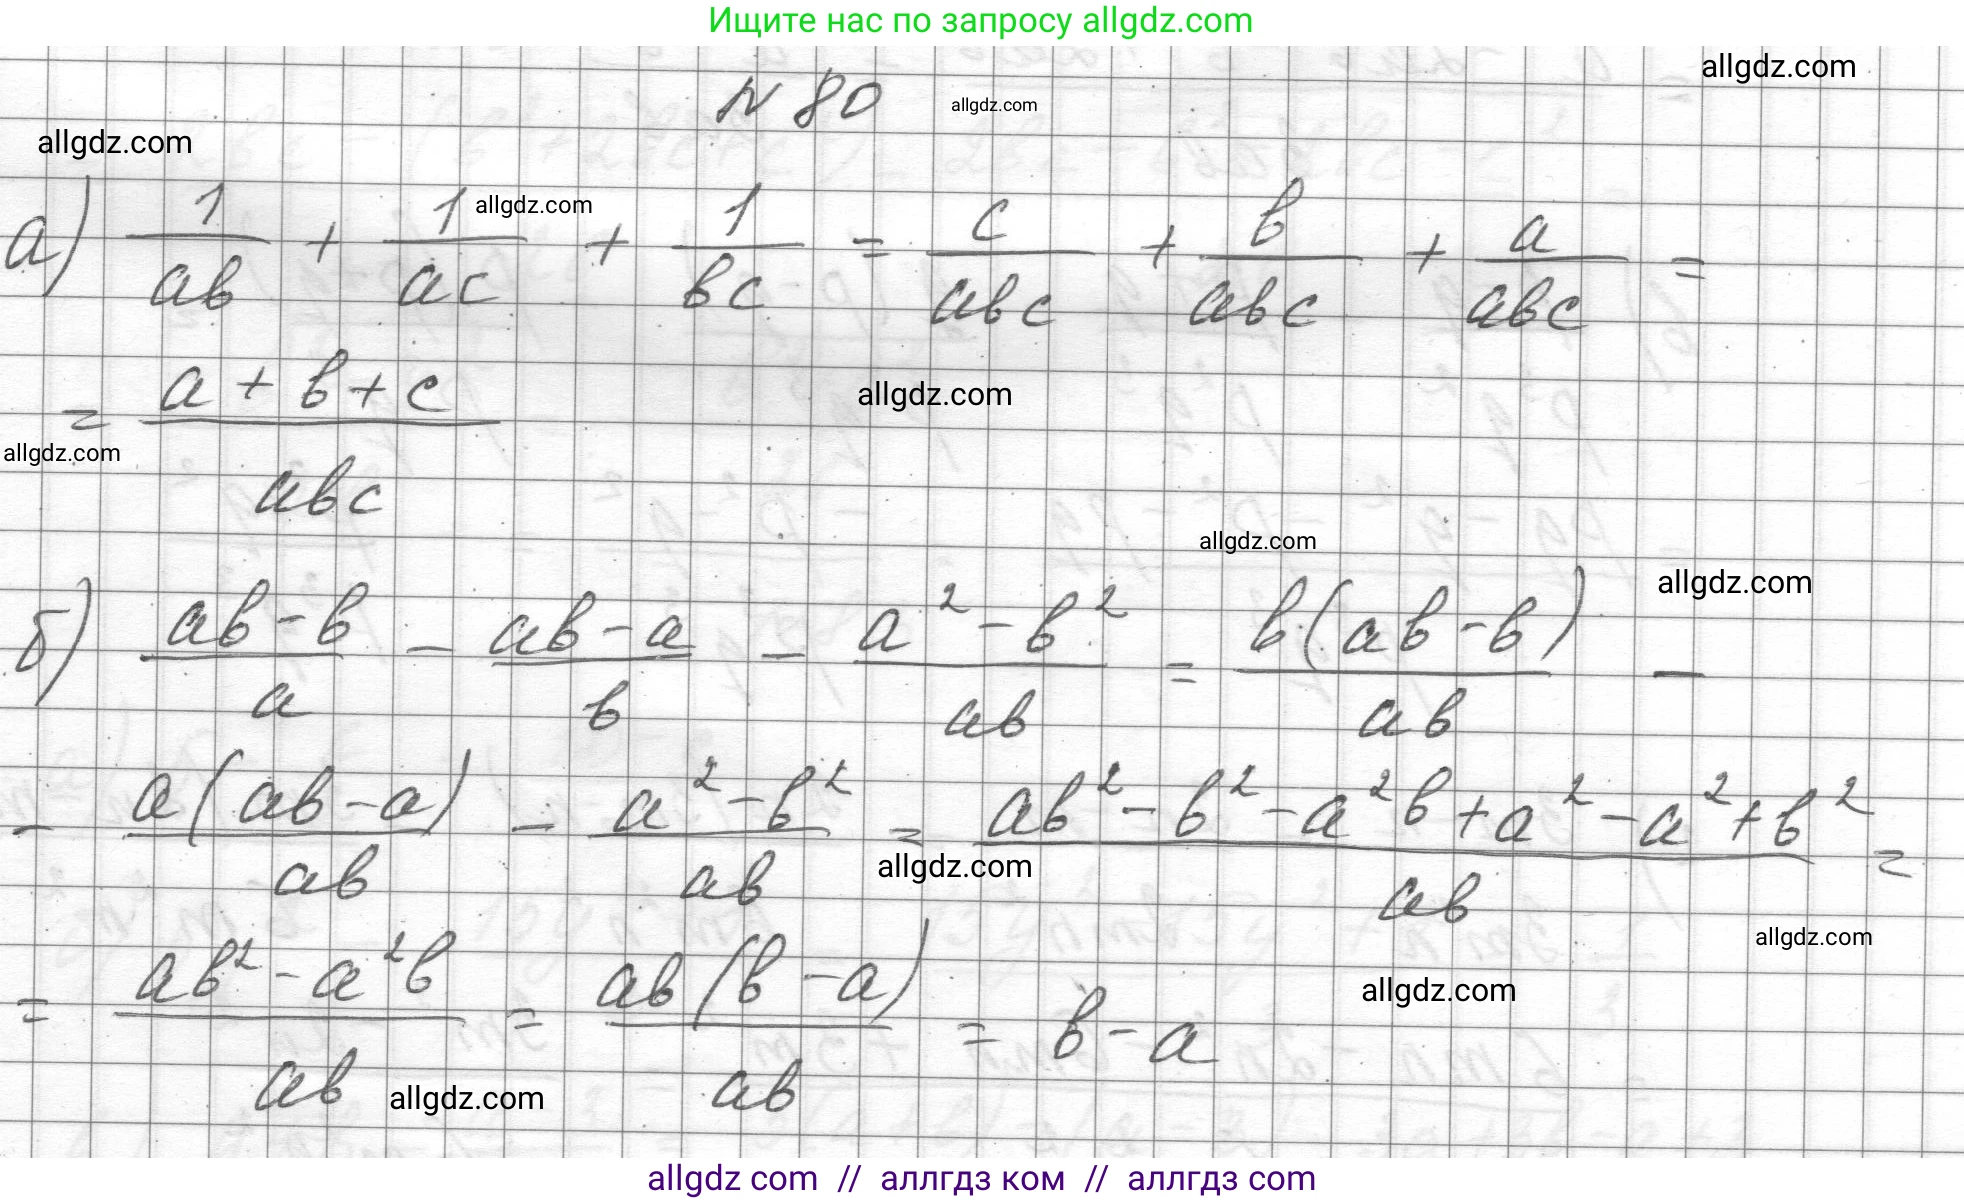 Ищите нас по запросу allgdz.com
allgdz.com
N 80 allgdz.com
allgdz.com
а) 1/ab + 1/ac + 1/bc = c/abc + b/abc + a/abc =
allgdz.com
= (a + b + c)/abc
allgdz.com
allgdz.com
allgdz.com
allgdz.com
б) (ab - b)/a - (ab - a)/b - (a² - b²)/ab = b(ab - b)/ab -
- a(ab - a)/ab - (a² - b²)/ab = (ab² - b² - a²b + a² - a² + b²)/ab =
allgdz.com
allgdz.com
= (ab² - a²b)/ab = ab(b - a)/ab = b - a
allgdz.com
allgdz.com
allgdz.com // аллгдз ком // аллгдз com